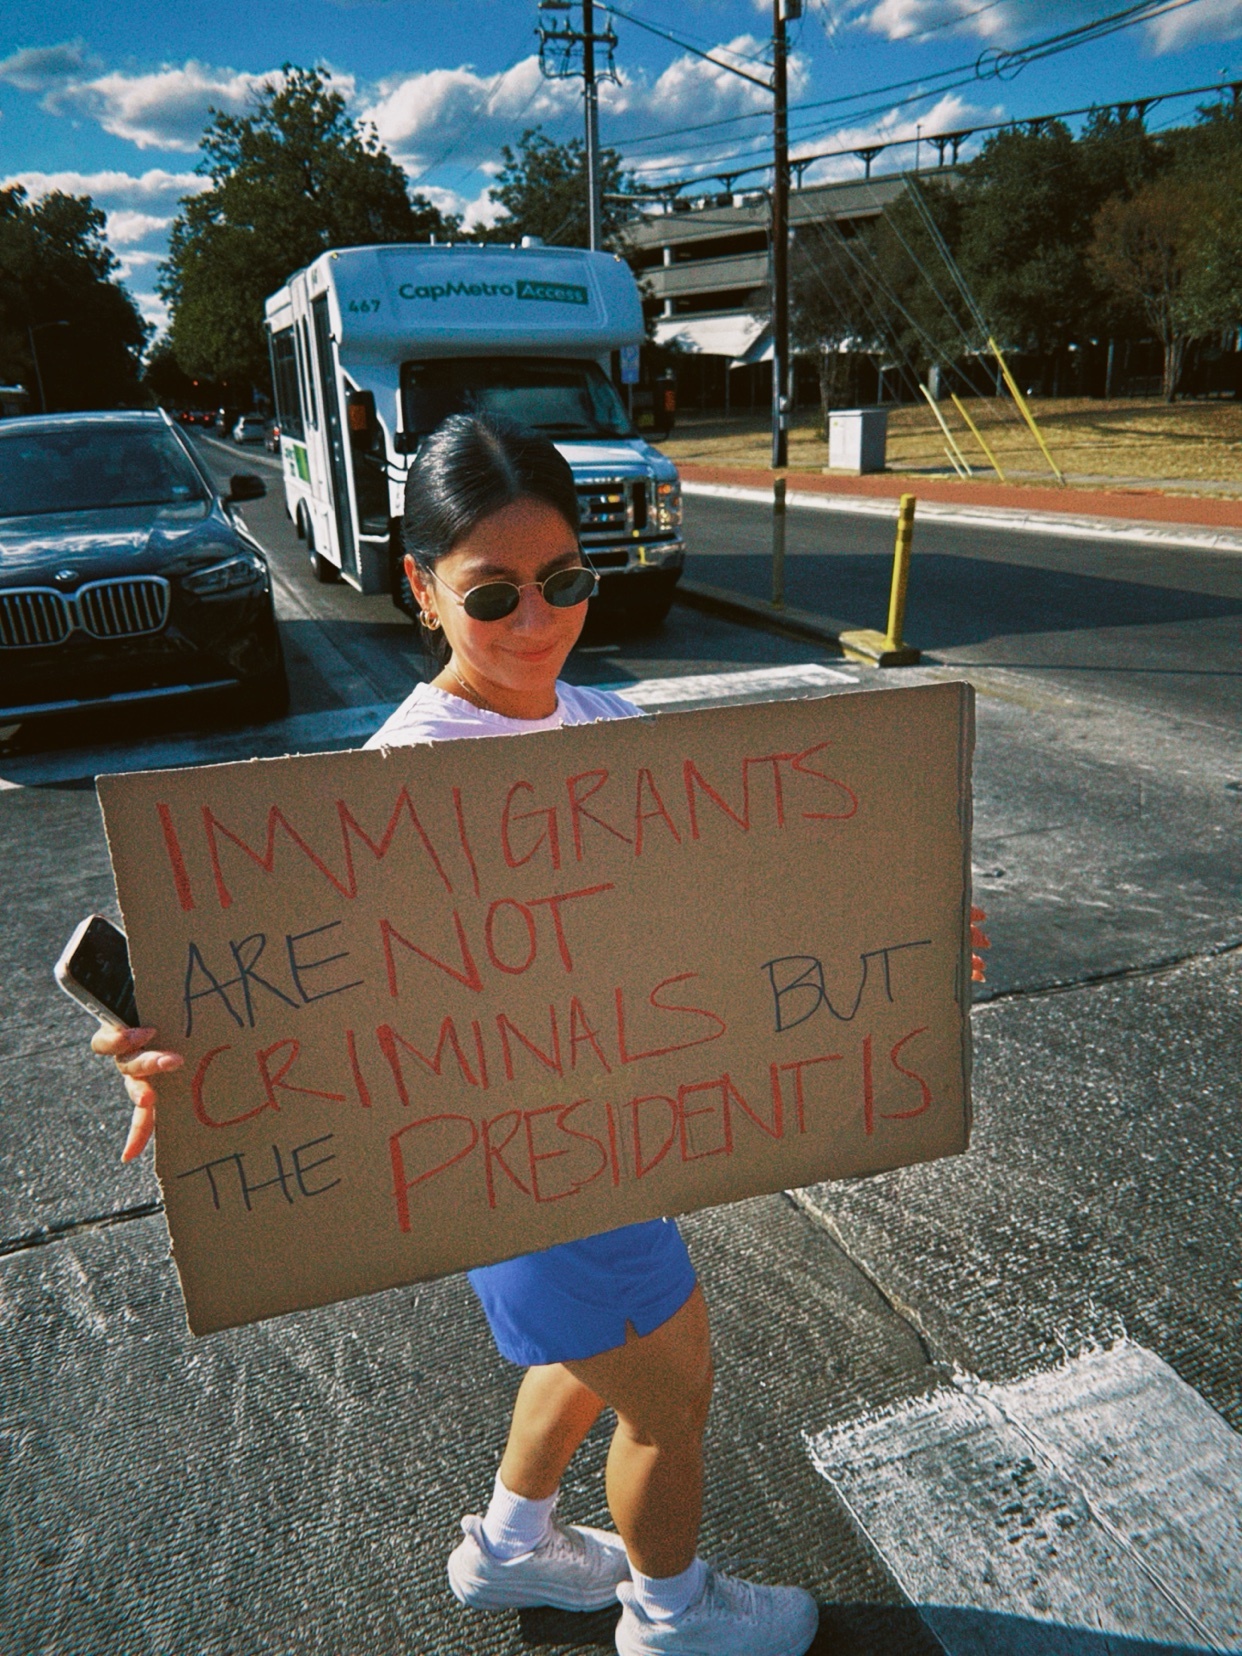 467
CapMetro Access
IMMIGRANTS
ARE NOT
CRIMINALS BUT
THE PRESIDENT IS